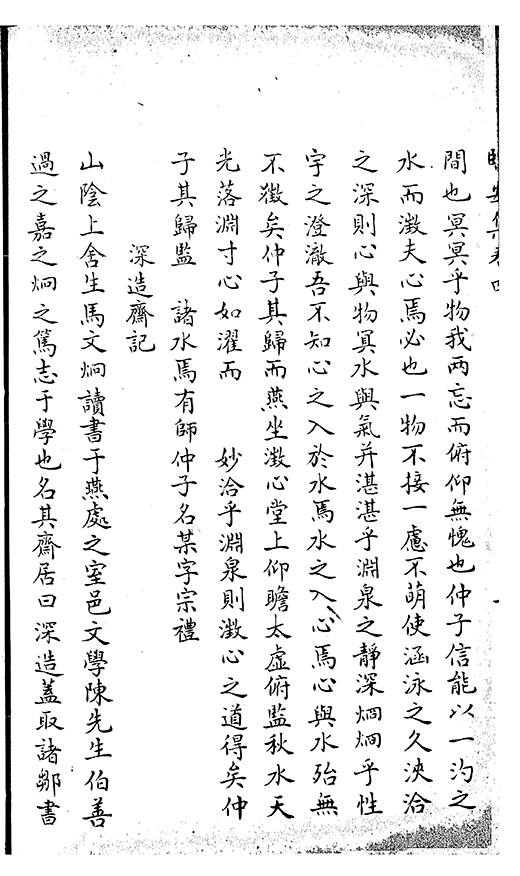 臨安集卷四
間也冥冥乎物我两忘而俯仰無愧也仲子信能以一汋之
水而澂夫心焉必也一物不接一慮不萌使涵泳之久浹洽
之深則心與物冥水與氣并湛湛乎淵泉之靜深烱烱乎性
宇之澄澈吾不知心之入於水焉水之入心焉心與水殆無
不徵矣仲子其歸而燕坐澂心堂上仰瞻太虛俯監秋水天
光落淵寸心如濯而 妙洽乎淵泉則澂心之道得矣仲
子其歸監 諸水焉有師仲子名某字宗禮
深造齋記
山陰上舍生馬文烱讀書于燕處之室邑文學陳先生伯善
過之嘉之烱之篤志于學也名其齋居曰深造蓋取諸鄒書